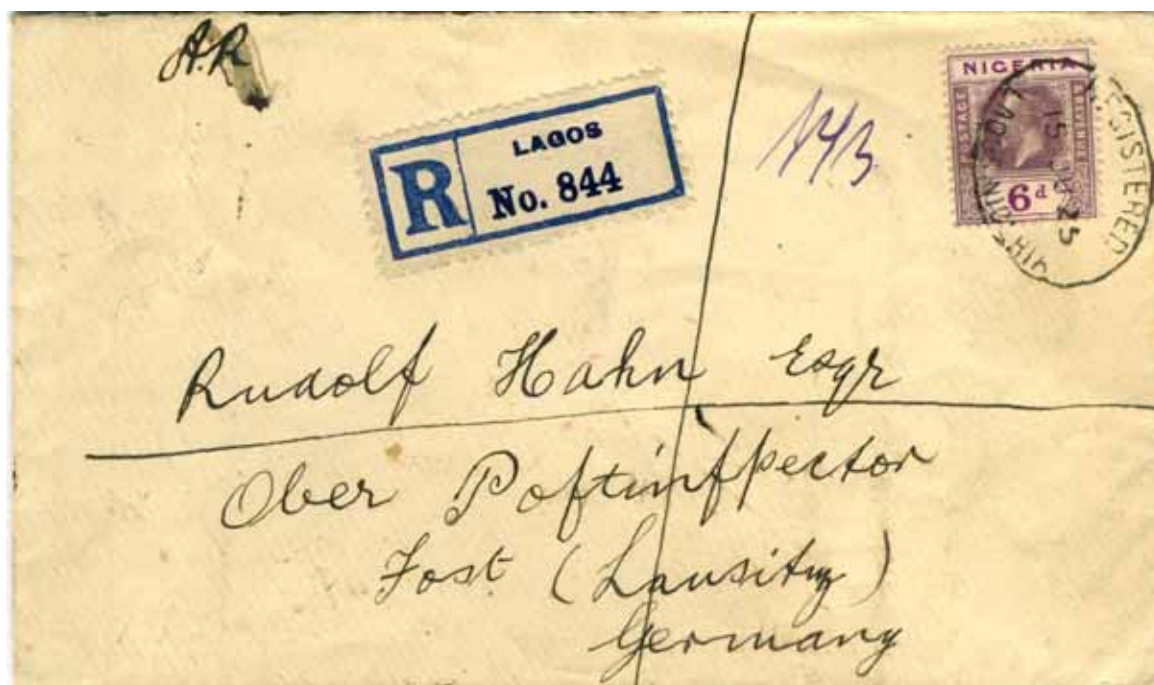 A.R
LAGOS
R No. 844
NIGERIA
POSTAGE
6d
REGISTERED
15 25
Rudolf Hahn Esqr
Ober Poftinfpector
Fost (Lausitz)
Germany